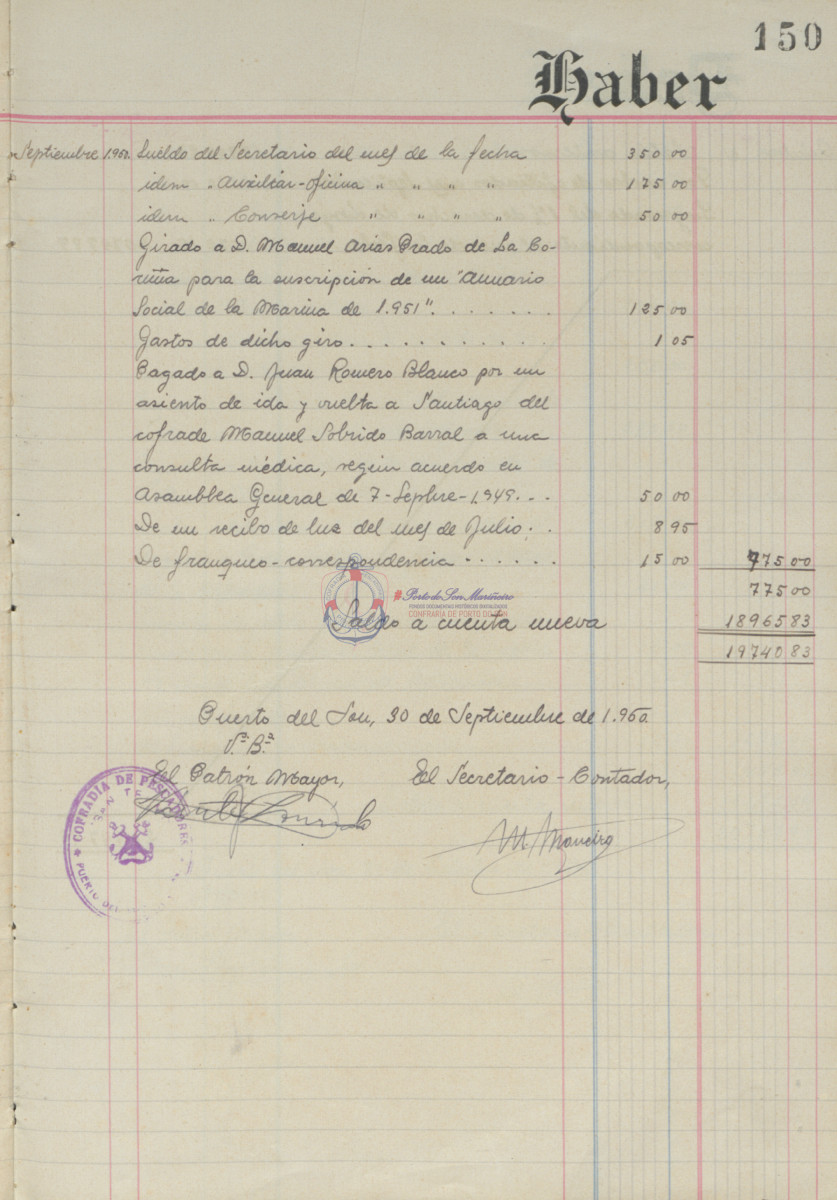 150
Haber
Septiembre 1.950. Sueldo del Secretario del mes de la fecha 350 00
idem " Auxiliar-oficina " " " " 175 00
idem " Conserje " " " " 50 00
Girado a D. Manuel Arias Prado de La Co-
ruña para la suscripción de un "Anuario
Social de la Marina de 1.951". . . . . . . 125 00
Gastos de dicho giro. . . . . . . . . . . 1 05
Pagado a D. Juan Romero Blanco por un
asiento de ida y vuelta a Santiago del
cofrade Manuel Sobrido Barral a una
consulta médica, según acuerdo en
Asamblea General de 7-Sepbre-1.949. . . 50 00
De un recibo de luz del mes de Julio. . 8 95
De franqueo-correspondencia . . . . . . 15 00 775 00
775 00
#Porto do Son Mariñeiro
FONDOS DOCUMENTAIS HISTÓRICOS DIXITALIZADOS
CONFRARÍA DE PORTO DO SON
Saldo a cuenta nueva 18965 83
19740 83
Puerto del Son, 30 de Septiembre de 1.950.
V.º B.º
El Patrón Mayor, El Secretario-Contador,
COFRADIA DE PESCADORES
PUERTO DEL
M. Maneiro